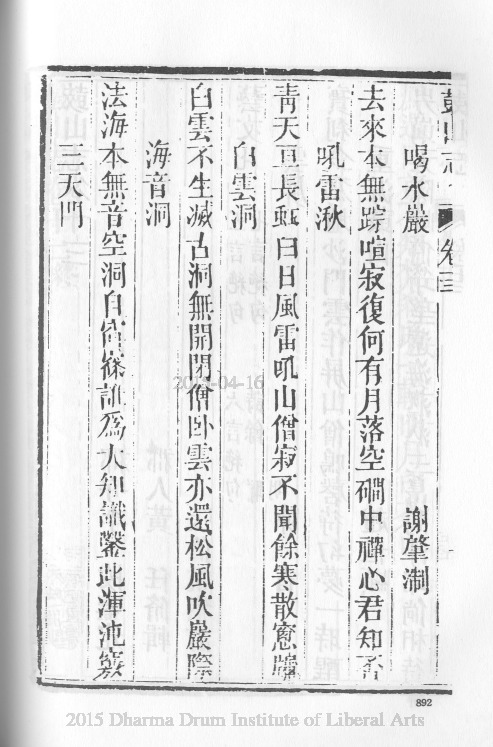 鼓山志 卷三
喝水巖 謝肇淛
去來本無踪喧寂復何有月落空磵中禪心君知否
吼雷湫
青天亘長虹白日風雷吼山僧寂不聞餘寒散窻牖
白雲洞
白雲不生滅古洞無開閉僧臥雲亦還松風吹巖際
海音洞
法海本無音空洞自窅窱誰爲大知識鑿此渾沌竅
三天門
892
2015-04-16
2015 Dharma Drum Institute of Liberal Arts